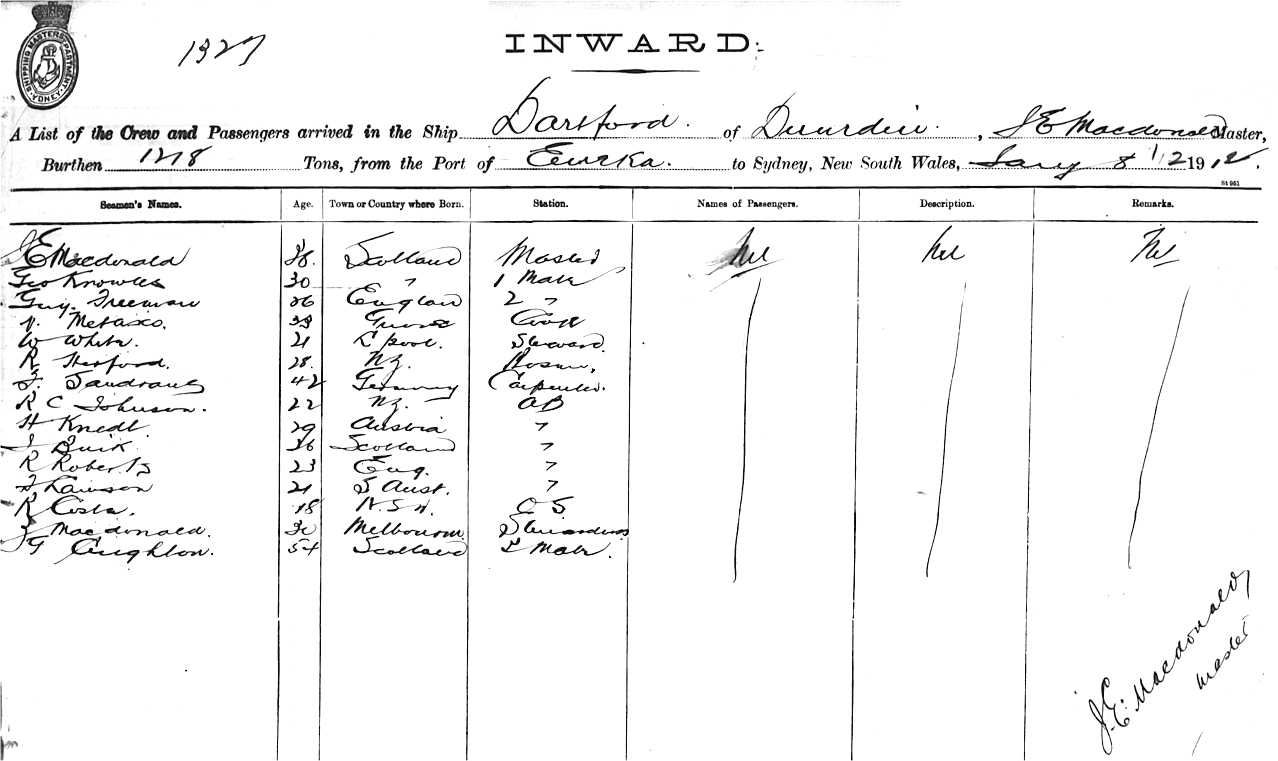 SHIPPING MASTERS
SYDNEY
1327
INWARD.
A List of the Crew and Passengers arrived in the Ship Dartford. of Dunedin. , J E Macdonald Master,
Burthen 1218 Tons, from the Port of Eureka. to Sydney, New South Wales, Jany 8 1/2 1912.
St 961
Seamen's Names. Age. Town or Country where Born. Station. Names of Passengers. Description. Remarks.
J E Macdonald 38. Scotland Master Nil Nil Nil
Geo Knowles 30 " 1 Mate
Guy. Freeman 26 England 2 "
Metaxo. Cook
W White. 21 L'pool. Steward.
R Hesford. 28. NZ. Bosun,
42 Germany Carpenter.
R C Johnson. 22 NZ. AB
H Knedl 29 Austria "
J Buik 36 Scotland "
R Roberts 23 Eng. "
Lawson 21 S Aust. "
R Costa. 18 N.S.W. O S
Macdonald. 30 Melbourne Stewardess
Creighton. 54 Scotland Mate.
J.E. Macdonald
Master